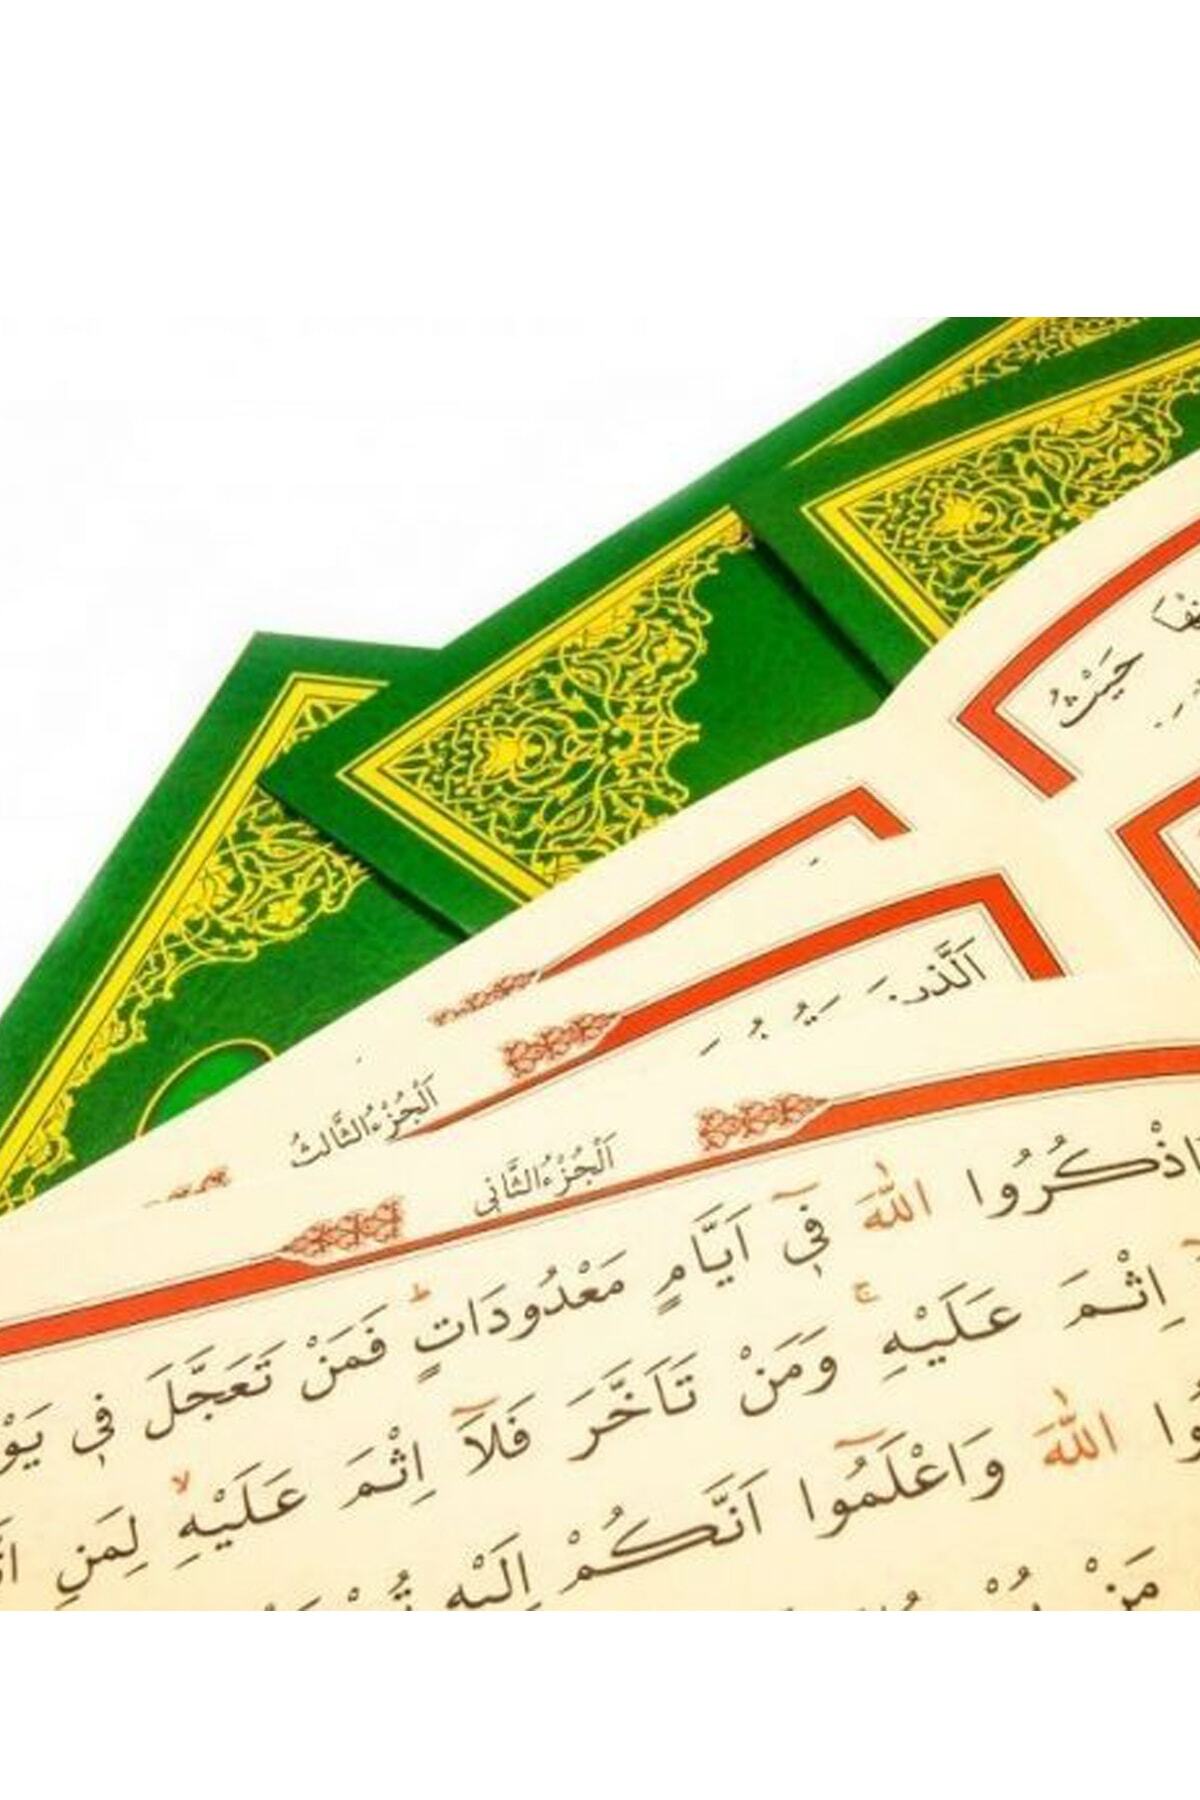 حَيْثُ
اَلَّذ۪ينَ
اَلْجُزْءُ الثَّالِثُ
اَلْجُزْءُ الثَّانِي
اذْكُرُوا اللّٰهَ ف۪ٓي اَيَّامٍ مَعْدُودَاتٍۜ فَمَنْ تَعَجَّلَ ف۪ي
اِثْمَ عَلَيْهِۚ وَمَنْ تَاَخَّرَ فَلَٓا اِثْمَ عَلَيْهِۙ لِمَنِ
اللّٰهَ وَاعْلَمُٓوا اَنَّكُمْ اِلَيْهِ
مَنْ